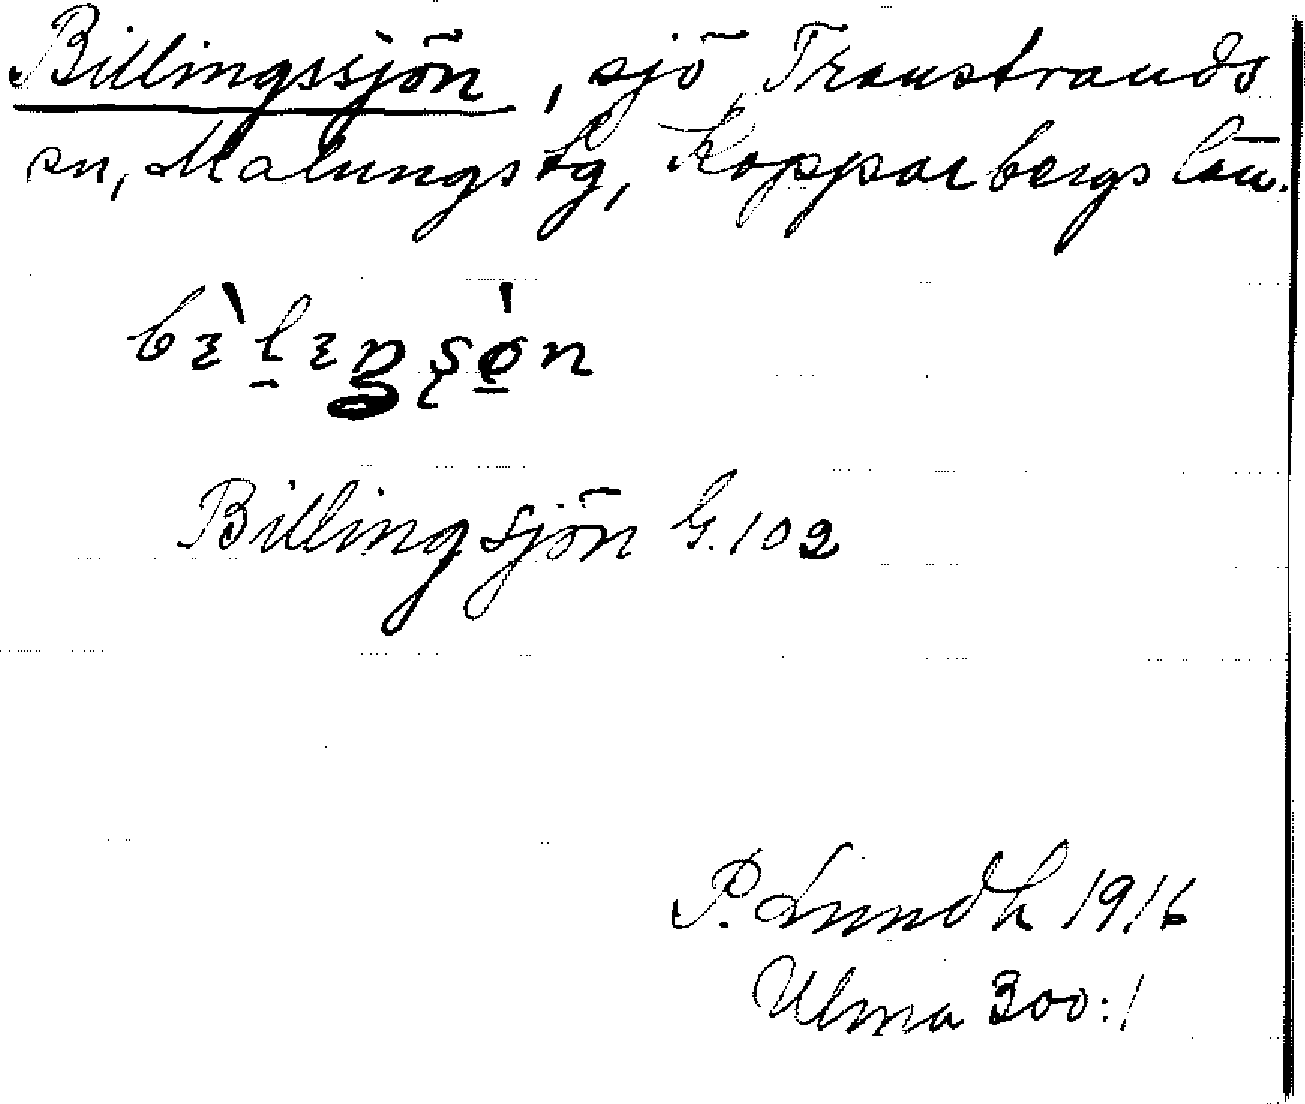 Billingssjön, sjö, Transtrands
sn, Malungs tg, Kopparbergs län.
Billingsjön G. 102
P. Lundh 1916
Ulma 300:1